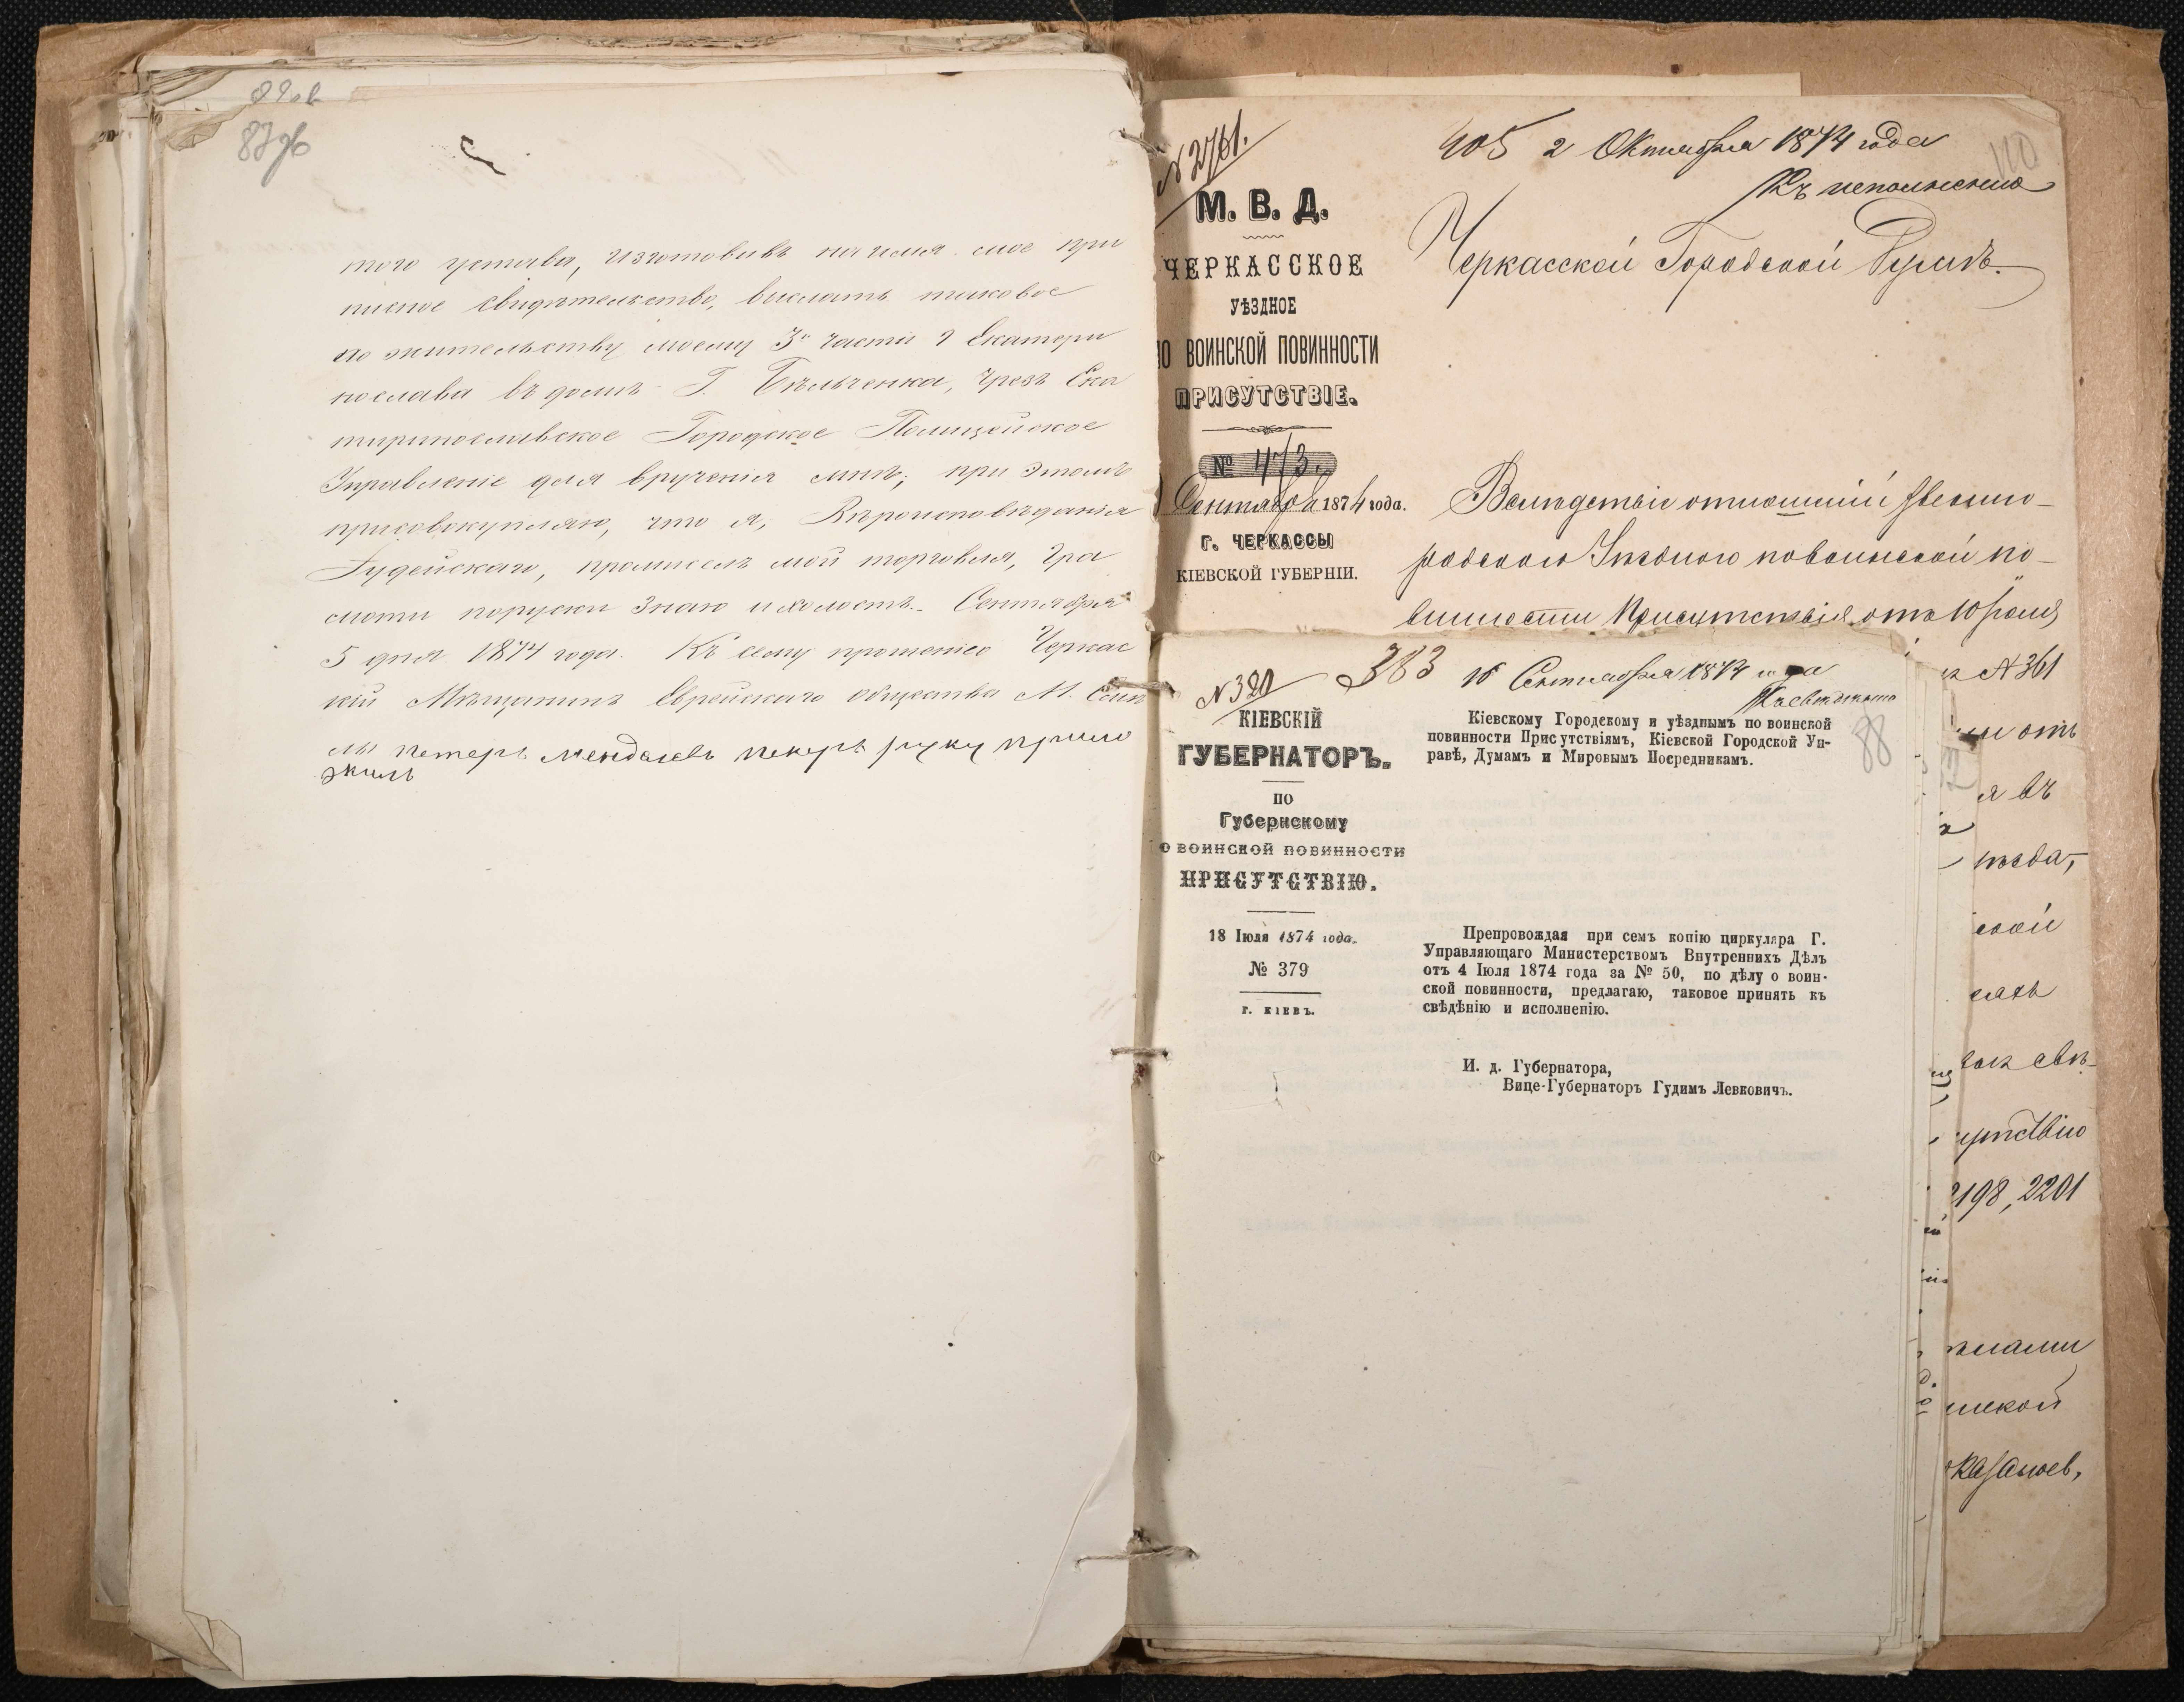 87об
того устава, изготовивъ на имя мое при
писное свидѣтельство, выслать таковое
по жительству моему 3й части г Екатери
нослава въ домъ Г. Бѣльченка, чрезъ Ека
тиринославское Городское Полицейское
Управленіе для врученія мнѣ; при этомъ
присовокупляю, что я, Вѣроисповѣданія
Іудейскаго, промыселъ мой торговля, гра
моти поруски знаю и холостъ. Сентября
5 дня 1874 года. Къ сему прошенію Черкас
кій Мѣщанинъ Еврейскаго общества М.
Петеръ Мендалевъ Пекуръ руку прило
жилъ
№ 2761.
М. В. Д.
ЧЕРКАССКОЕ
УѢЗДНОЕ
ПО ВОИНСКОЙ ПОВИННОСТИ
ПРИСУТСТВІЕ.
№ 473.
Сентября 1874 года.
Г. ЧЕРКАССЫ
КІЕВСКОЙ ГУБЕРНІИ.
405 2 Октября 1874 года
110
Къ исполненію
Черкасской Городской Думѣ.
Вслѣдствіе отношенія Звенино-
родского Уѣзднаго по воинской по-
винности Присутствія отъ 10 Іюля
№ 361
отъ
я въ
уѣзда,
ской
свѣ-
утствію
2198, 2201
№ 320
383 16 Сентября 1874 года
Къ свѣдѣнію
88
КІЕВСКІЙ
ГУБЕРНАТОРЪ.
ПО
Губернскому
О ВОИНСКОЙ ПОВИННОСТИ
ПРИСУТСТВІЮ.
18 Іюля 1874 года.
№ 379
Г. КІЕВЪ.
Кіевскому Городскому и уѣзднымъ по воинской
повинности Присутствіямъ, Кіевской Городской Уп-
равѣ, Думамъ и Мировымъ Посредникамъ.
Препровождая при семъ копію циркуляра Г.
Управляющаго Министерствомъ Внутреннихъ Дѣлъ
отъ 4 Іюля 1874 года за № 50, по дѣлу о воин-
ской повинности, предлагаю, таковое принять къ
свѣдѣнію и исполненію.
И. д. Губернатора,
Вице-Губернаторъ Гудимъ Левковичъ.